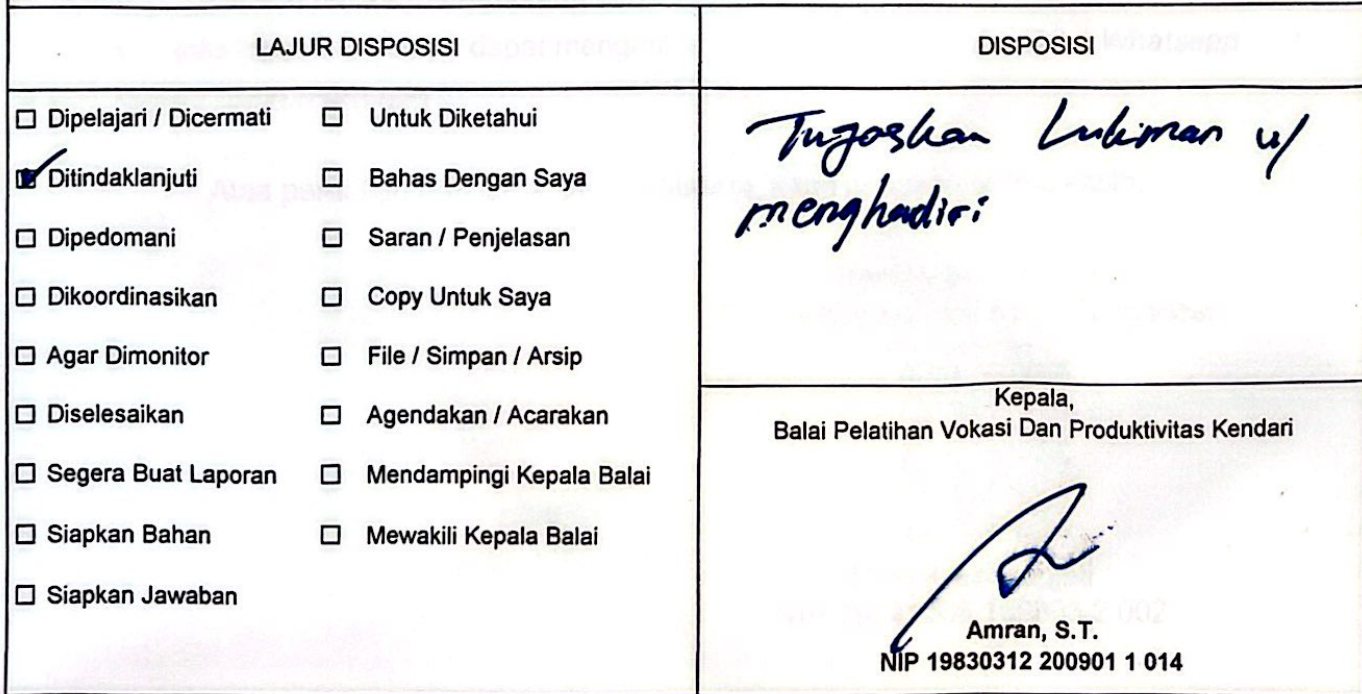 LAJUR DISPOSISI
DISPOSISI
☐ Dipelajari / Dicermati ☐ Untuk Diketahui
☑ Ditindaklanjuti ☐ Bahas Dengan Saya
☐ Dipedomani ☐ Saran / Penjelasan
☐ Dikoordinasikan ☐ Copy Untuk Saya
☐ Agar Dimonitor ☐ File / Simpan / Arsip
☐ Diselesaikan ☐ Agendakan / Acarakan
☐ Segera Buat Laporan ☐ Mendampingi Kepala Balai
☐ Siapkan Bahan ☐ Mewakili Kepala Balai
☐ Siapkan Jawaban
Tugaskan Lukman u/
menghadiri
Kepala,
Balai Pelatihan Vokasi Dan Produktivitas Kendari
Amran, S.T.
NIP 19830312 200901 1 014